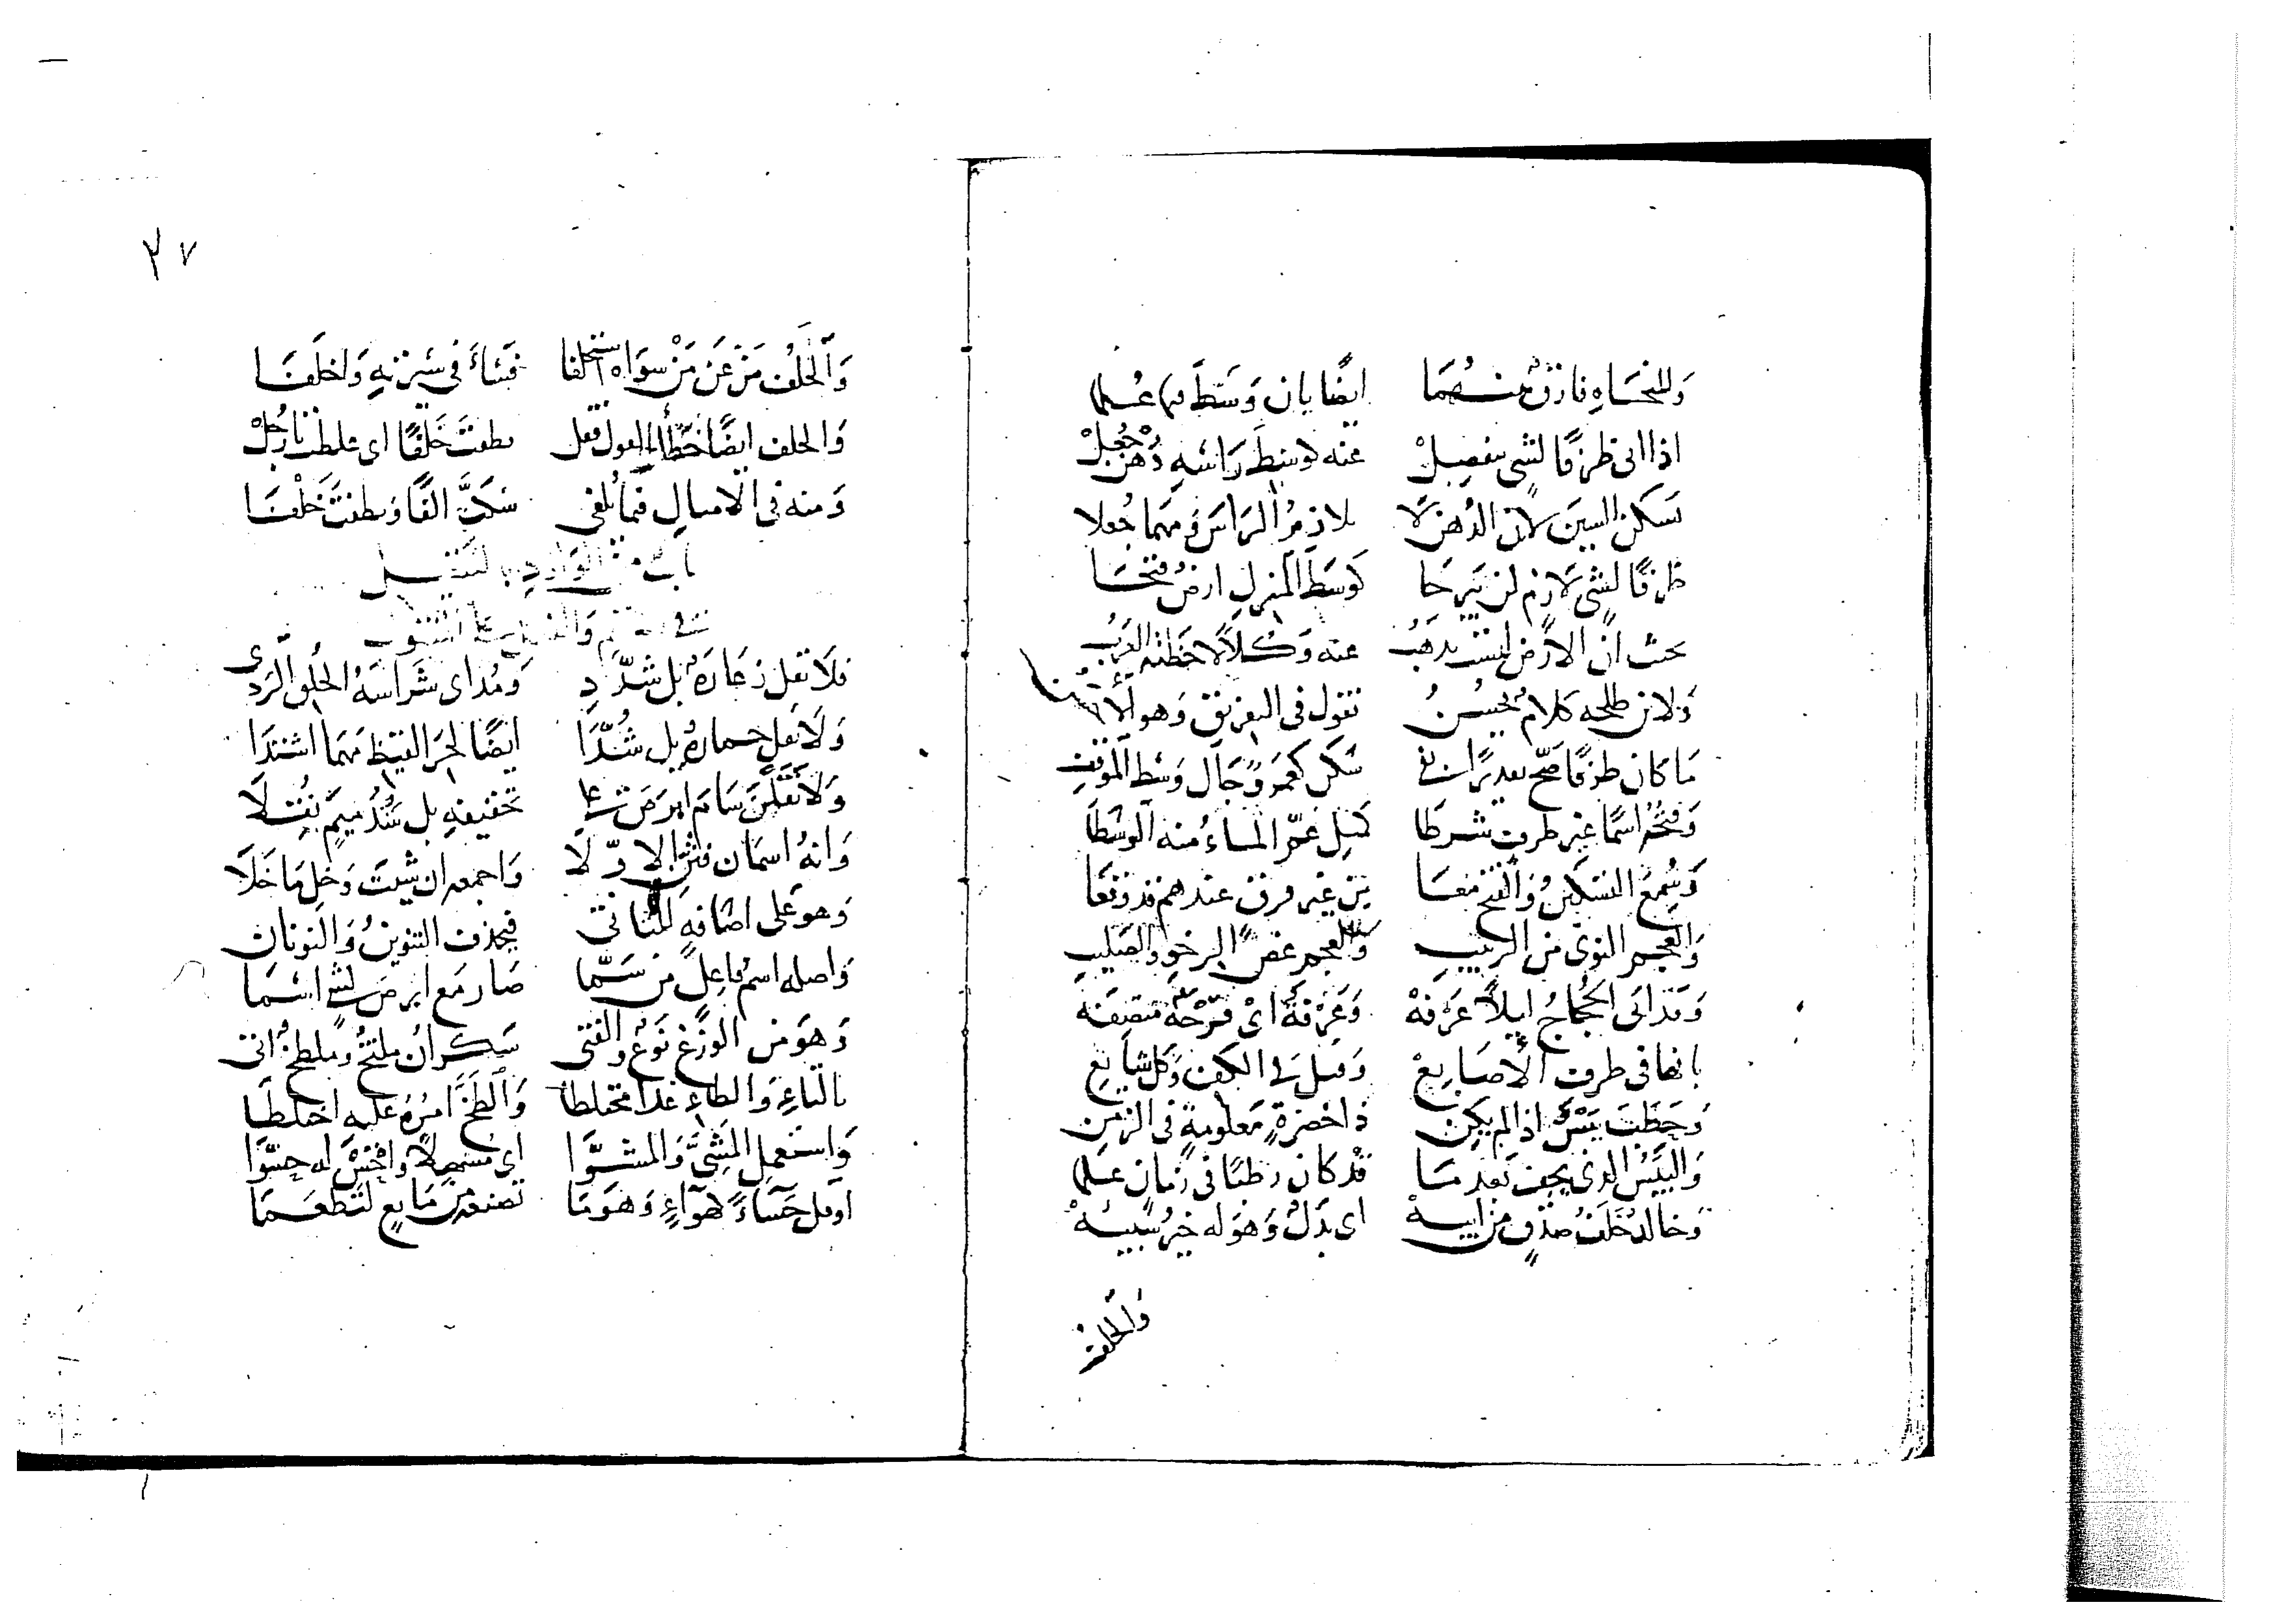 وَللنحَاهِ فارق بينهما ايضًا بان وَسَطَ مهما عُلما
اذا اتى ظرفًا لشي ينفصِلْ عنه كوسْطَ رَاسِهِ دُهنٌ جُعِلْ
تسكن السين لان الدُهن لا يلازمُ الرَاسَ فمهما جُعلا
ظرفًا لشي لازمٍ لن يبرحَا كوسَط المنزلِ ارضٌ فتحَا
بحيث انّ الارض ليست تذهَبُ عنه وَكلًا لاحظته العَربُ
وَلابن طلحه كلامٌ يحسُنُ نقول في التفريق وَهو
مَا كان ظرفًا صحّ تقديرًا سكن كعَمرٌو جَال وَسْط الموقف
وَفتحُه اسمًا غير ظرف شرطا كمثلِ عمّ الماءُ منه الوسَطَا
وَسُمِعَ التسكينُ وَالفتح معَا من غير فرق عندهم قد وقعَا
وَالعجم النوى من الزبيبِ وَالعجم عضّ الرخو والصليبِ
وَقد اتى الحجاجُ ايلًا عَرَفهْ وَعَرْفةٌ اىْ قرْحَةٌ متصِفه
بانها في طرف الاصَابعْ وَقيل في الكف وَكل شايعْ
وَحطَبٌ يَبْسٌ اذا لم يكنِ ذا خضرةٍ مَعلومةٍ في الزمَنِ
وَاليَبَسُ الذى يجف بَعد مَا قدْ كان رطبًا في زمَان علما
وَخالدٌ خلَفُ صدْقٍ من ابيهْ اى بَدَلٌ وَهوَ له خيرُ شبيهْ
وَالخلفُ
٢٧
وَالخلْفُ مَنْ عَن مَنْ سوَاه استخلفا فشاءَ في سيرتهِ وَاخلَفا
وَالخلف ايضًا خَطأ القول فقل نطقتَ خَلْفًا اى غلطت يا رَجُلْ
وَمنه في الامثالِ فيما يُلفى سَكَتَّ الفًا وَنطقتَ خَلْفَا
باب
فلَا تقل زعَارَةٌ بل شدّدِ وَهُو اى شَراسَةُ الخُلق الرَدى
وَلَا تقل حمارَةٌ بل شُدِّدَا ايضًا لحَرّ القيظ مَهما اشتدَا
وَلَا تقلْ سَامَ ابرَصَ على تخفيفهِ بل شُدّ ميمٌ ثقِّلَا
وَانهُ اسمَان فثنّ الاوّلَا وَاجمعه ان شيتَ وَخل مَا خَلَا
وَهو عَلى اضافةٍ للثاني فيحذف التنوينُ وَالنونان
وَاصله اسم فاعِلٍ من سَمَّا صَار مَع ابرصَ لشى اسْما
وَهوَ من الوزَغ نَوعٌ وَالفتى سَكرانُ ملتخٌ وَملطخٌ اتى
بالتاءِ وَالطاءِ غدا مختلطا وَالطَّخُّ امْرُهُ عليه اختلطَا
وَاستعمل المَشِىَّ وَالمشوّا اى مسهِلًا وَاحْسُ له حسُوّا
او قل حَسَاءً كهوَاءٍ وَهوَ مَا تصنعه من مَايعٍ لتطعَمَا